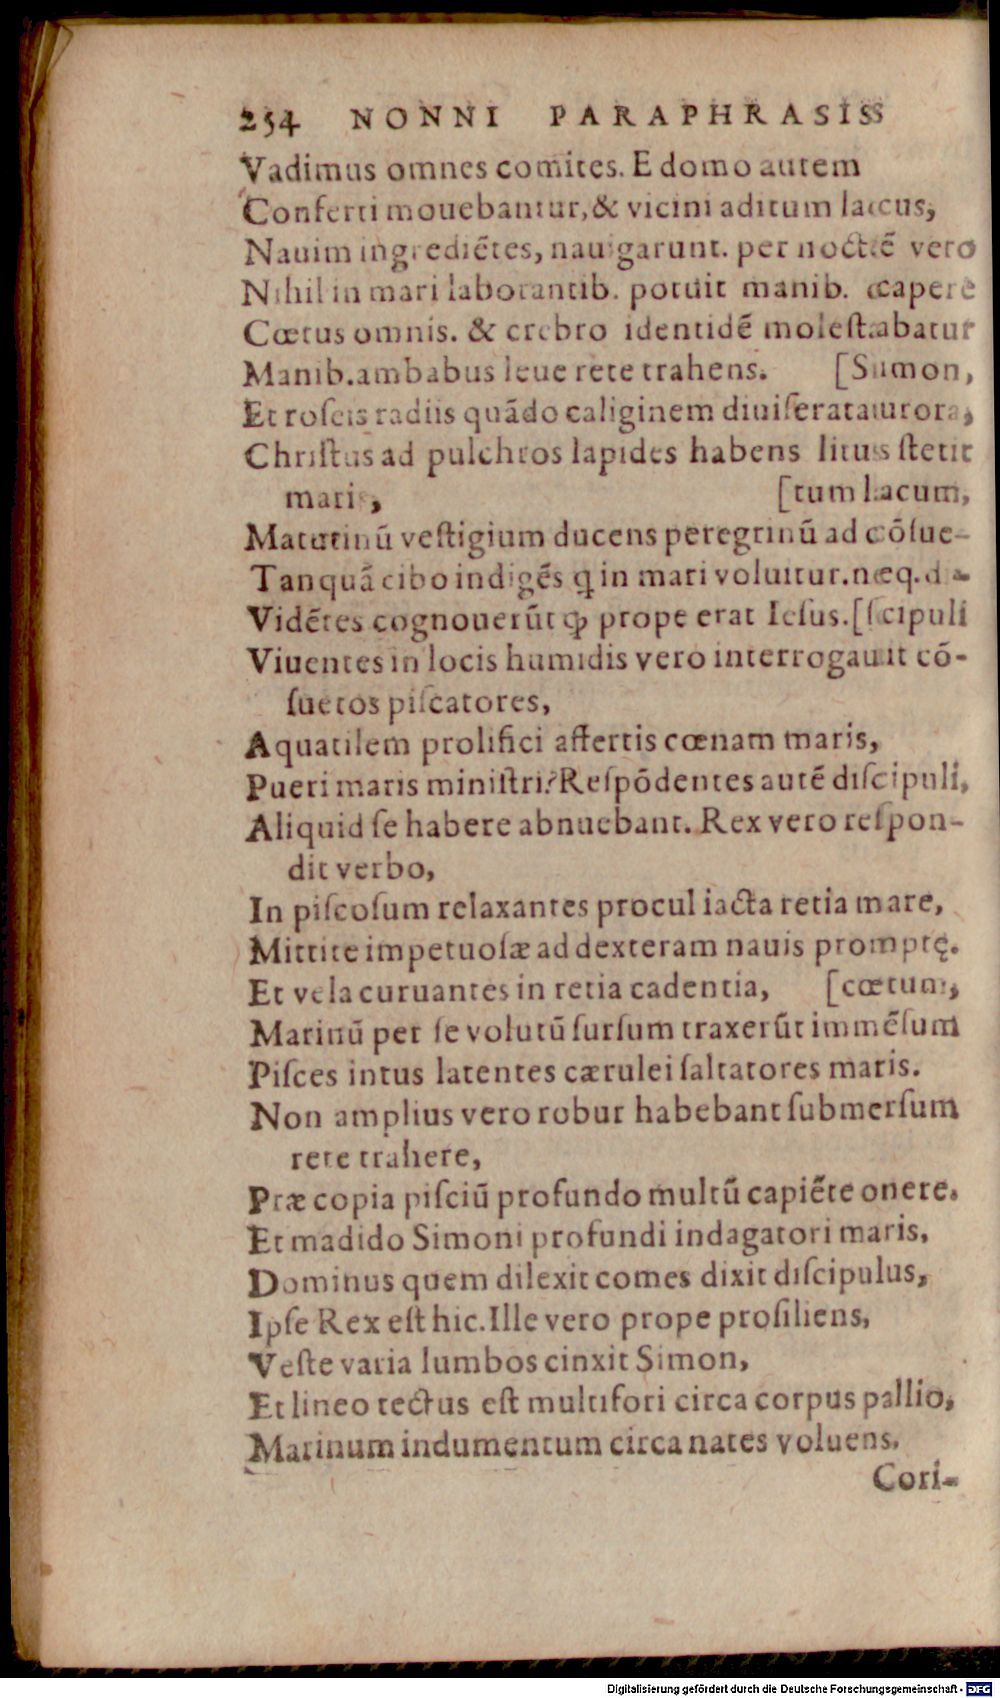 254 NONNI PARAPHRASIS
Vadimus omnes comites. E domo autem
Conferti mouebantur, & vicini aditum lacus,
Nauim ingrediẽtes, nauigarunt. per noctẽ vero
Nihil in mari laborantib. potuit manib. capere
Cœtus omnis. & crebro identidẽ molestabatur
Manib. ambabus leue rete trahens. [Simon,
Et roſeis radiis quãdo caliginem diuiſerat aurora,
Chriſtus ad pulchros lapides habens litus ſtetit
maris, [tum lacum,
Matutinũ veſtigium ducens peregrinũ ad cõſue-
Tanquã cibo indigẽs ꝗ in mari voluitur. neq. di-
Vidẽtes cognouerũt ꝙ prope erat Ieſus. [ſcipuli
Viuentes in locis humidis vero interrogauit cõ-
ſuetos piſcatores,
Aquatilem prolifici affertis cœnam maris,
Pueri maris miniſtri? Reſpõdentes autẽ diſcipuli,
Aliquid ſe habere abnuebant. Rex vero reſpon-
dit verbo,
In piſcoſum relaxantes procul iacta retia mare,
Mittite impetuoſæ ad dexteram nauis promptę.
Et vela curuantes in retia cadentia, [cœtum,
Marinũ per ſe volutũ ſurſum traxerũt immẽſum
Piſces intus latentes cærulei ſaltatores maris.
Non amplius vero robur habebant ſubmerſum
rete trahere,
Præ copia piſciũ profundo multũ capiẽte onere.
Et madido Simoni profundi indagatori maris,
Dominus quem dilexit comes dixit diſcipulus,
Ipſe Rex eſt hic. Ille vero prope proſiliens,
Veſte varia lumbos cinxit Simon,
Et lineo tectus eſt multifori circa corpus pallio,
Marinum indumentum circa nates voluens.
Cori-
Digitalisierung gefördert durch die Deutsche Forschungsgemeinschaft - DFG